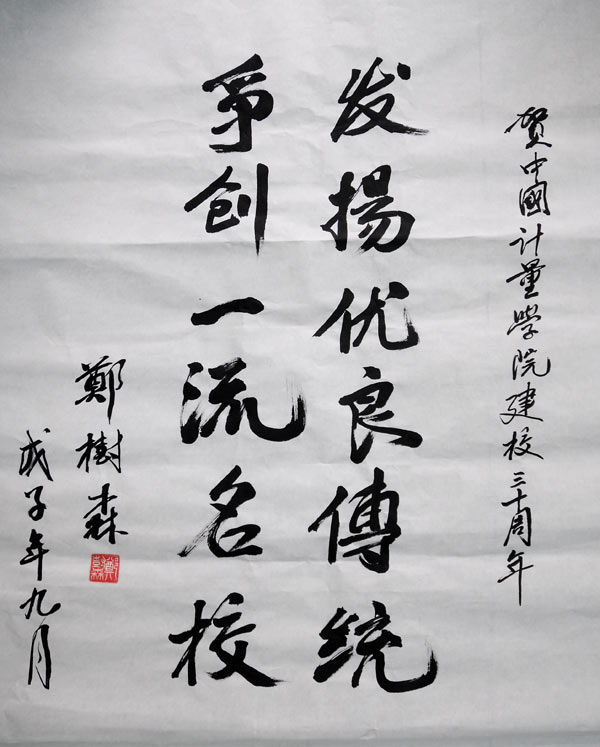 贺中國计量学院建校三十周年
发揚优良傳统
争创一流名校
鄭樹森
戊子年九月